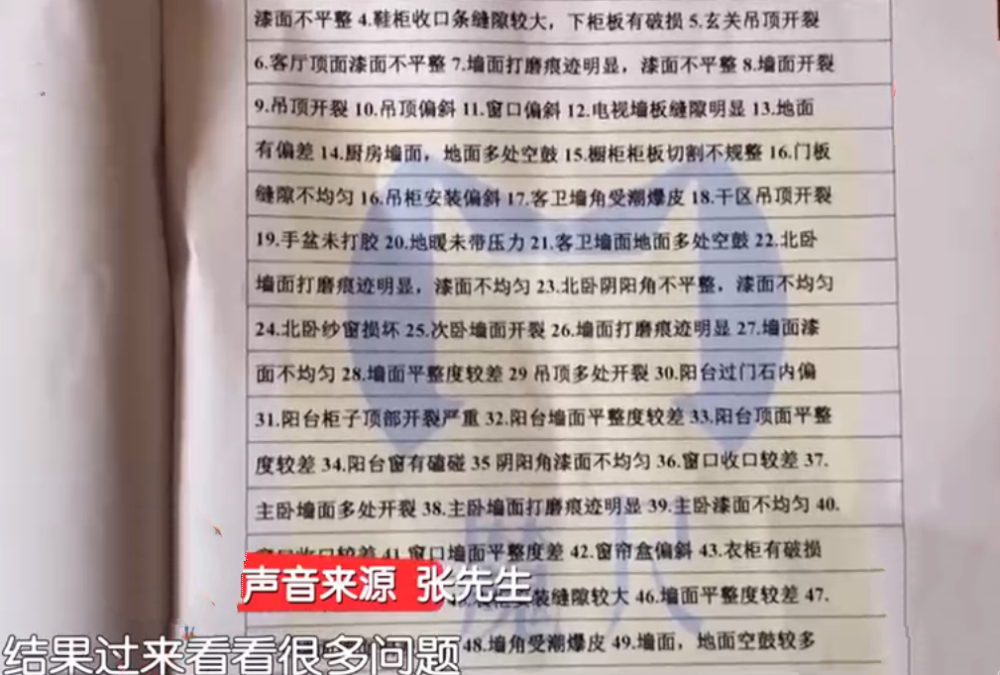 漆面不平整 4.鞋柜收口条缝隙较大，下柜板有破损 5.玄关吊顶开裂
6.客厅顶面漆面不平整 7.墙面打磨痕迹明显，漆面不平整 8.墙面开裂
9.吊顶开裂 10.吊顶偏斜 11.窗口偏斜 12.电视墙板缝隙明显 13.地面
有偏差 14.厨房墙面，地面多处空鼓 15.橱柜柜板切割不规整 16.门板
缝隙不均匀 16.吊柜安装偏斜 17.客卫墙角受潮爆皮 18.干区吊顶开裂
19.手盆未打胶 20.地暖未带压力 21.客卫墙面地面多处空鼓 22.北卧
墙面打磨痕迹明显，漆面不均匀 23.北卧阴阳角不平整，漆面不均匀
24.北卧纱窗损坏 25.次卧墙面开裂 26.墙面打磨痕迹明显 27.墙面漆
面不均匀 28.墙面平整度较差 29 吊顶多处开裂 30.阳台过门石内偏
31.阳台柜子顶部开裂严重 32.阳台墙面平整度较差 33.阳台顶面平整
度较差 34.阳台窗有磕碰 35 阴阳角漆面不均匀 36.窗口收口较差 37.
主卧墙面多处开裂 38.主卧墙面打磨痕迹明显 39.主卧漆面不均匀 40.
窗口收口较差 41.窗口墙面平整度差 42.窗帘盒偏斜 43.衣柜有破损
声音来源 张先生
装缝隙较大 46.墙面平整度较差 47.
结果过来看看很多问题
48.墙角受潮爆皮 49.墙面，地面空鼓较多